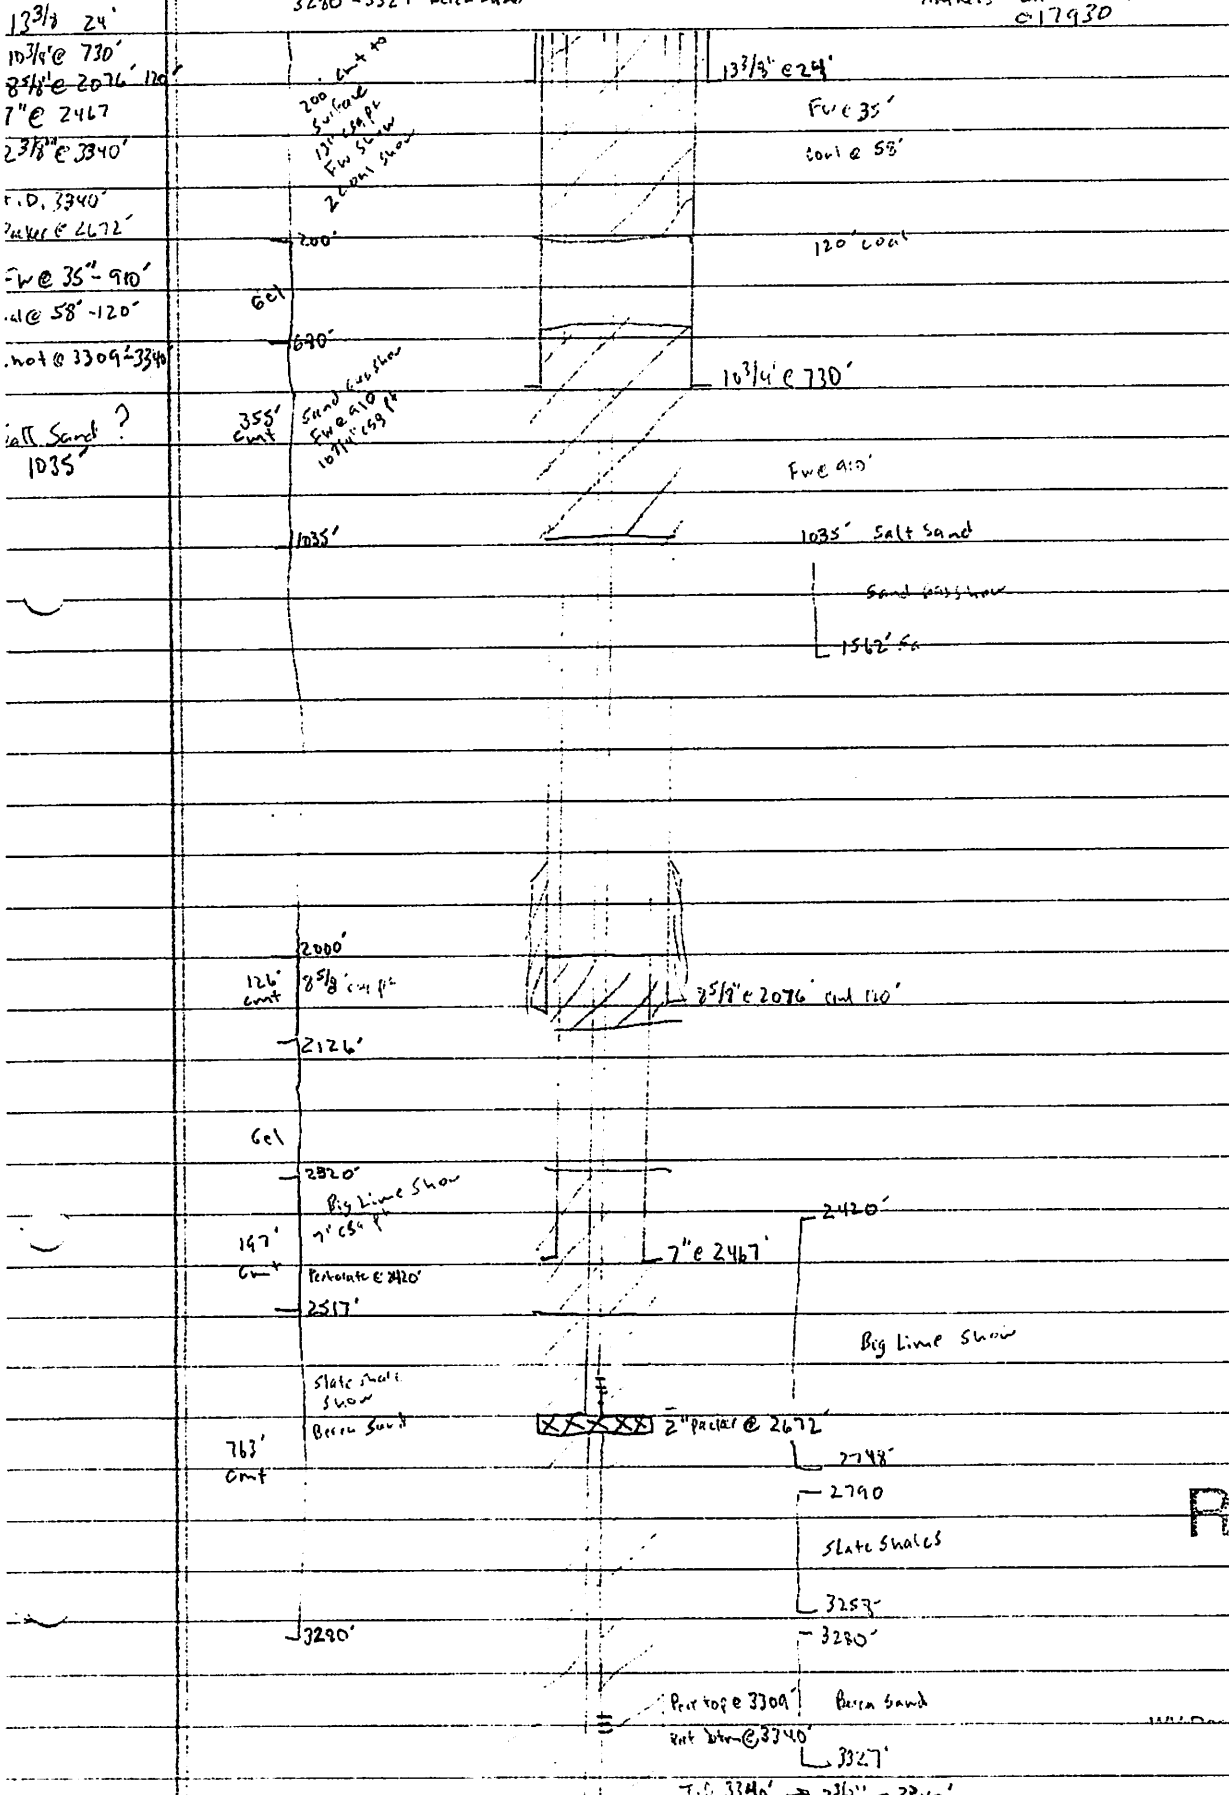 13 3/8 24'
10 3/4' @ 730'
8 5/8' @ 2076' 120'
7" @ 2467
2 3/8" @ 3340'
T.D. 3340'
Packer @ 2672'
FW @ 35' - 910'
al @ 58' - 120'
hot @ 3309'-3340'
alt Sand ?
1035'
c17930
200' Cmt to
Surface
13" csg pt
FW Show
2 Coal Show
200'
Gel
680'
355'
Cmt
Sand Gas Show
FW @ 910
10 3/4" csg pt
1035'
2000'
126'
cmt
8 5/8' csg pt
2126'
Gel
2320'
Big Lime Show
7" csg pt
197'
Cmt
Perforate @ 2420'
2517'
Slate Shale
Show
Berea Sand
763'
Cmt
3280'
13 3/8" @ 24'
FW @ 35'
Coal @ 58'
120' coal
10 3/4' @ 730'
FW @ 910'
1035' Salt Sand
Sand gas show
1562'
8 5/8" @ 2076' cmt 120'
2420'
7" @ 2467'
Big Lime Show
2" packer @ 2672'
2748'
2790
Slate Shales
3253'
3280'
Perf top @ 3309'
Berea Sand
Perf btm @ 3340'
3327'
T.D. 3340'
R